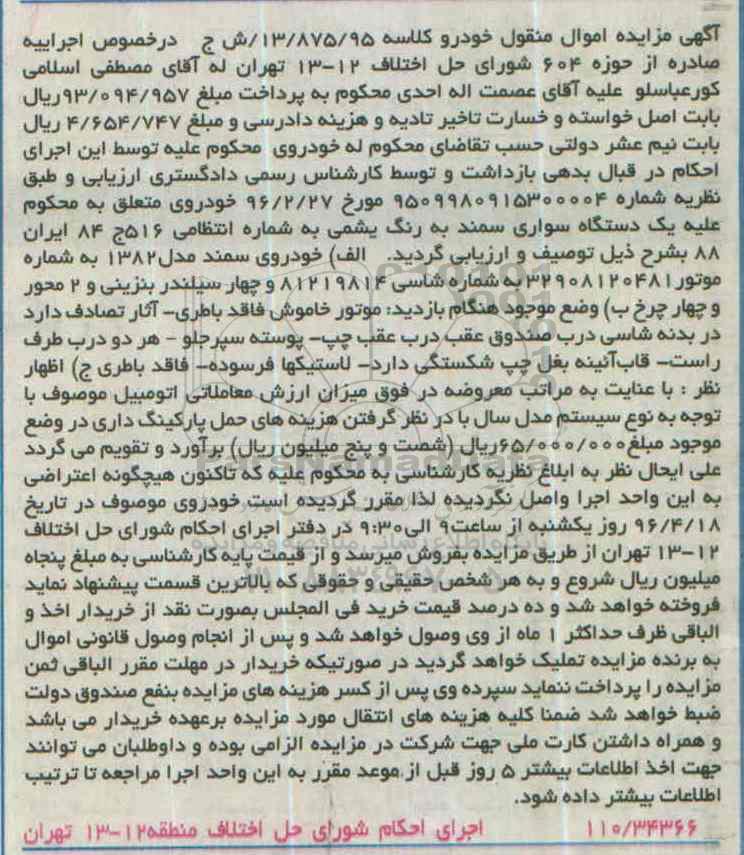 آگهی مزایده اموال منقول خودرو کلاسه ۱۳/۸۷۵/۹۵/ش ج درخصوص اجراییه
صادره از حوزه ۶۰۴ شورای حل اختلاف ۱۲-۱۳ تهران له آقای مصطفی اسلامی
کورعباسلو علیه آقای عصمت اله احدی محکوم به پرداخت مبلغ ۹۳/۰۹۴/۹۵۷ریال
بابت اصل خواسته و خسارت تاخیر تادیه و هزینه دادرسی و مبلغ ۴/۶۵۴/۷۴۷ ریال
بابت نیم عشر دولتی حسب تقاضای محکوم له خودروی محکوم علیه توسط این اجرای
احکام در قبال بدهی بازداشت و توسط کارشناس رسمی دادگستری ارزیابی و طبق
نظریه شماره ۹۵۰۹۹۸۰۹۱۵۳۰۰۰۰۴ مورخ ۹۶/۲/۲۷ خودروی متعلق به محکوم
علیه یک دستگاه سواری سمند به رنگ یشمی به شماره انتظامی ۵۱۶ج ۸۴ ایران
۸۸ بشرح ذیل توصیف و ارزیابی گردید. الف) خودروی سمند مدل۱۳۸۲ به شماره
موتور۳۲۹۰۸۱۲۰۴۸۱ به شماره شاسی ۸۱۲۱۹۸۱۴ و چهار سیلندر بنزینی و ۲ محور
و چهار چرخ ب) وضع موجود هنگام بازدید: موتور خاموش فاقد باطری- آثار تصادف دارد
در بدنه شاسی درب صندوق عقب درب عقب چپ- پوسته سپرجلو - هر دو درب طرف
راست- قاب‌آئینه بغل چپ شکستگی دارد- لاستیکها فرسوده- فاقد باطری ج) اظهار
نظر : با عنایت به مراتب معروضه در فوق میزان ارزش معاملاتی اتومبیل موصوف با
توجه به نوع سیستم مدل سال با در نظر گرفتن هزینه های حمل پارکینگ داری در وضع
موجود مبلغ۶۵/۰۰۰/۰۰۰ریال (شصت و پنج میلیون ریال) برآورد و تقویم می گردد
علی ایحال نظر به ابلاغ نظریه کارشناسی به محکوم علیه که تاکنون هیچگونه اعتراضی
به این واحد اجرا واصل نگردیده لذا مقرر گردیده است خودروی موصوف در تاریخ
۹۶/۴/۱۸ روز یکشنبه از ساعت۹ الی۹:۳۰ در دفتر اجرای احکام شورای حل اختلاف
۱۲-۱۳ تهران از طریق مزایده بفروش میرسد و از قیمت پایه کارشناسی به مبلغ پنجاه
میلیون ریال شروع و به هر شخص حقیقی و حقوقی که بالاترین قسمت پیشنهاد نماید
فروخته خواهد شد و ده درصد قیمت خرید فی المجلس بصورت نقد از خریدار اخذ و
الباقی ظرف حداکثر ۱ ماه از وی وصول خواهد شد و پس از انجام وصول قانونی اموال
به برنده مزایده تملیک خواهد گردید در صورتیکه خریدار در مهلت مقرر الباقی ثمن
مزایده را پرداخت ننماید سپرده وی پس از کسر هزینه های مزایده بنفع صندوق دولت
ضبط خواهد شد ضمنا کلیه هزینه های انتقال مورد مزایده برعهده خریدار می باشد
و همراه داشتن کارت ملی جهت شرکت در مزایده الزامی بوده و داوطلبان می توانند
جهت اخذ اطلاعات بیشتر ۵ روز قبل از موعد مقرر به این واحد اجرا مراجعه تا ترتیب
اطلاعات بیشتر داده شود.
۱۱۰/۳۴۳۶۶ اجرای احکام شورای حل اختلاف منطقه۱۲-۱۳ تهران